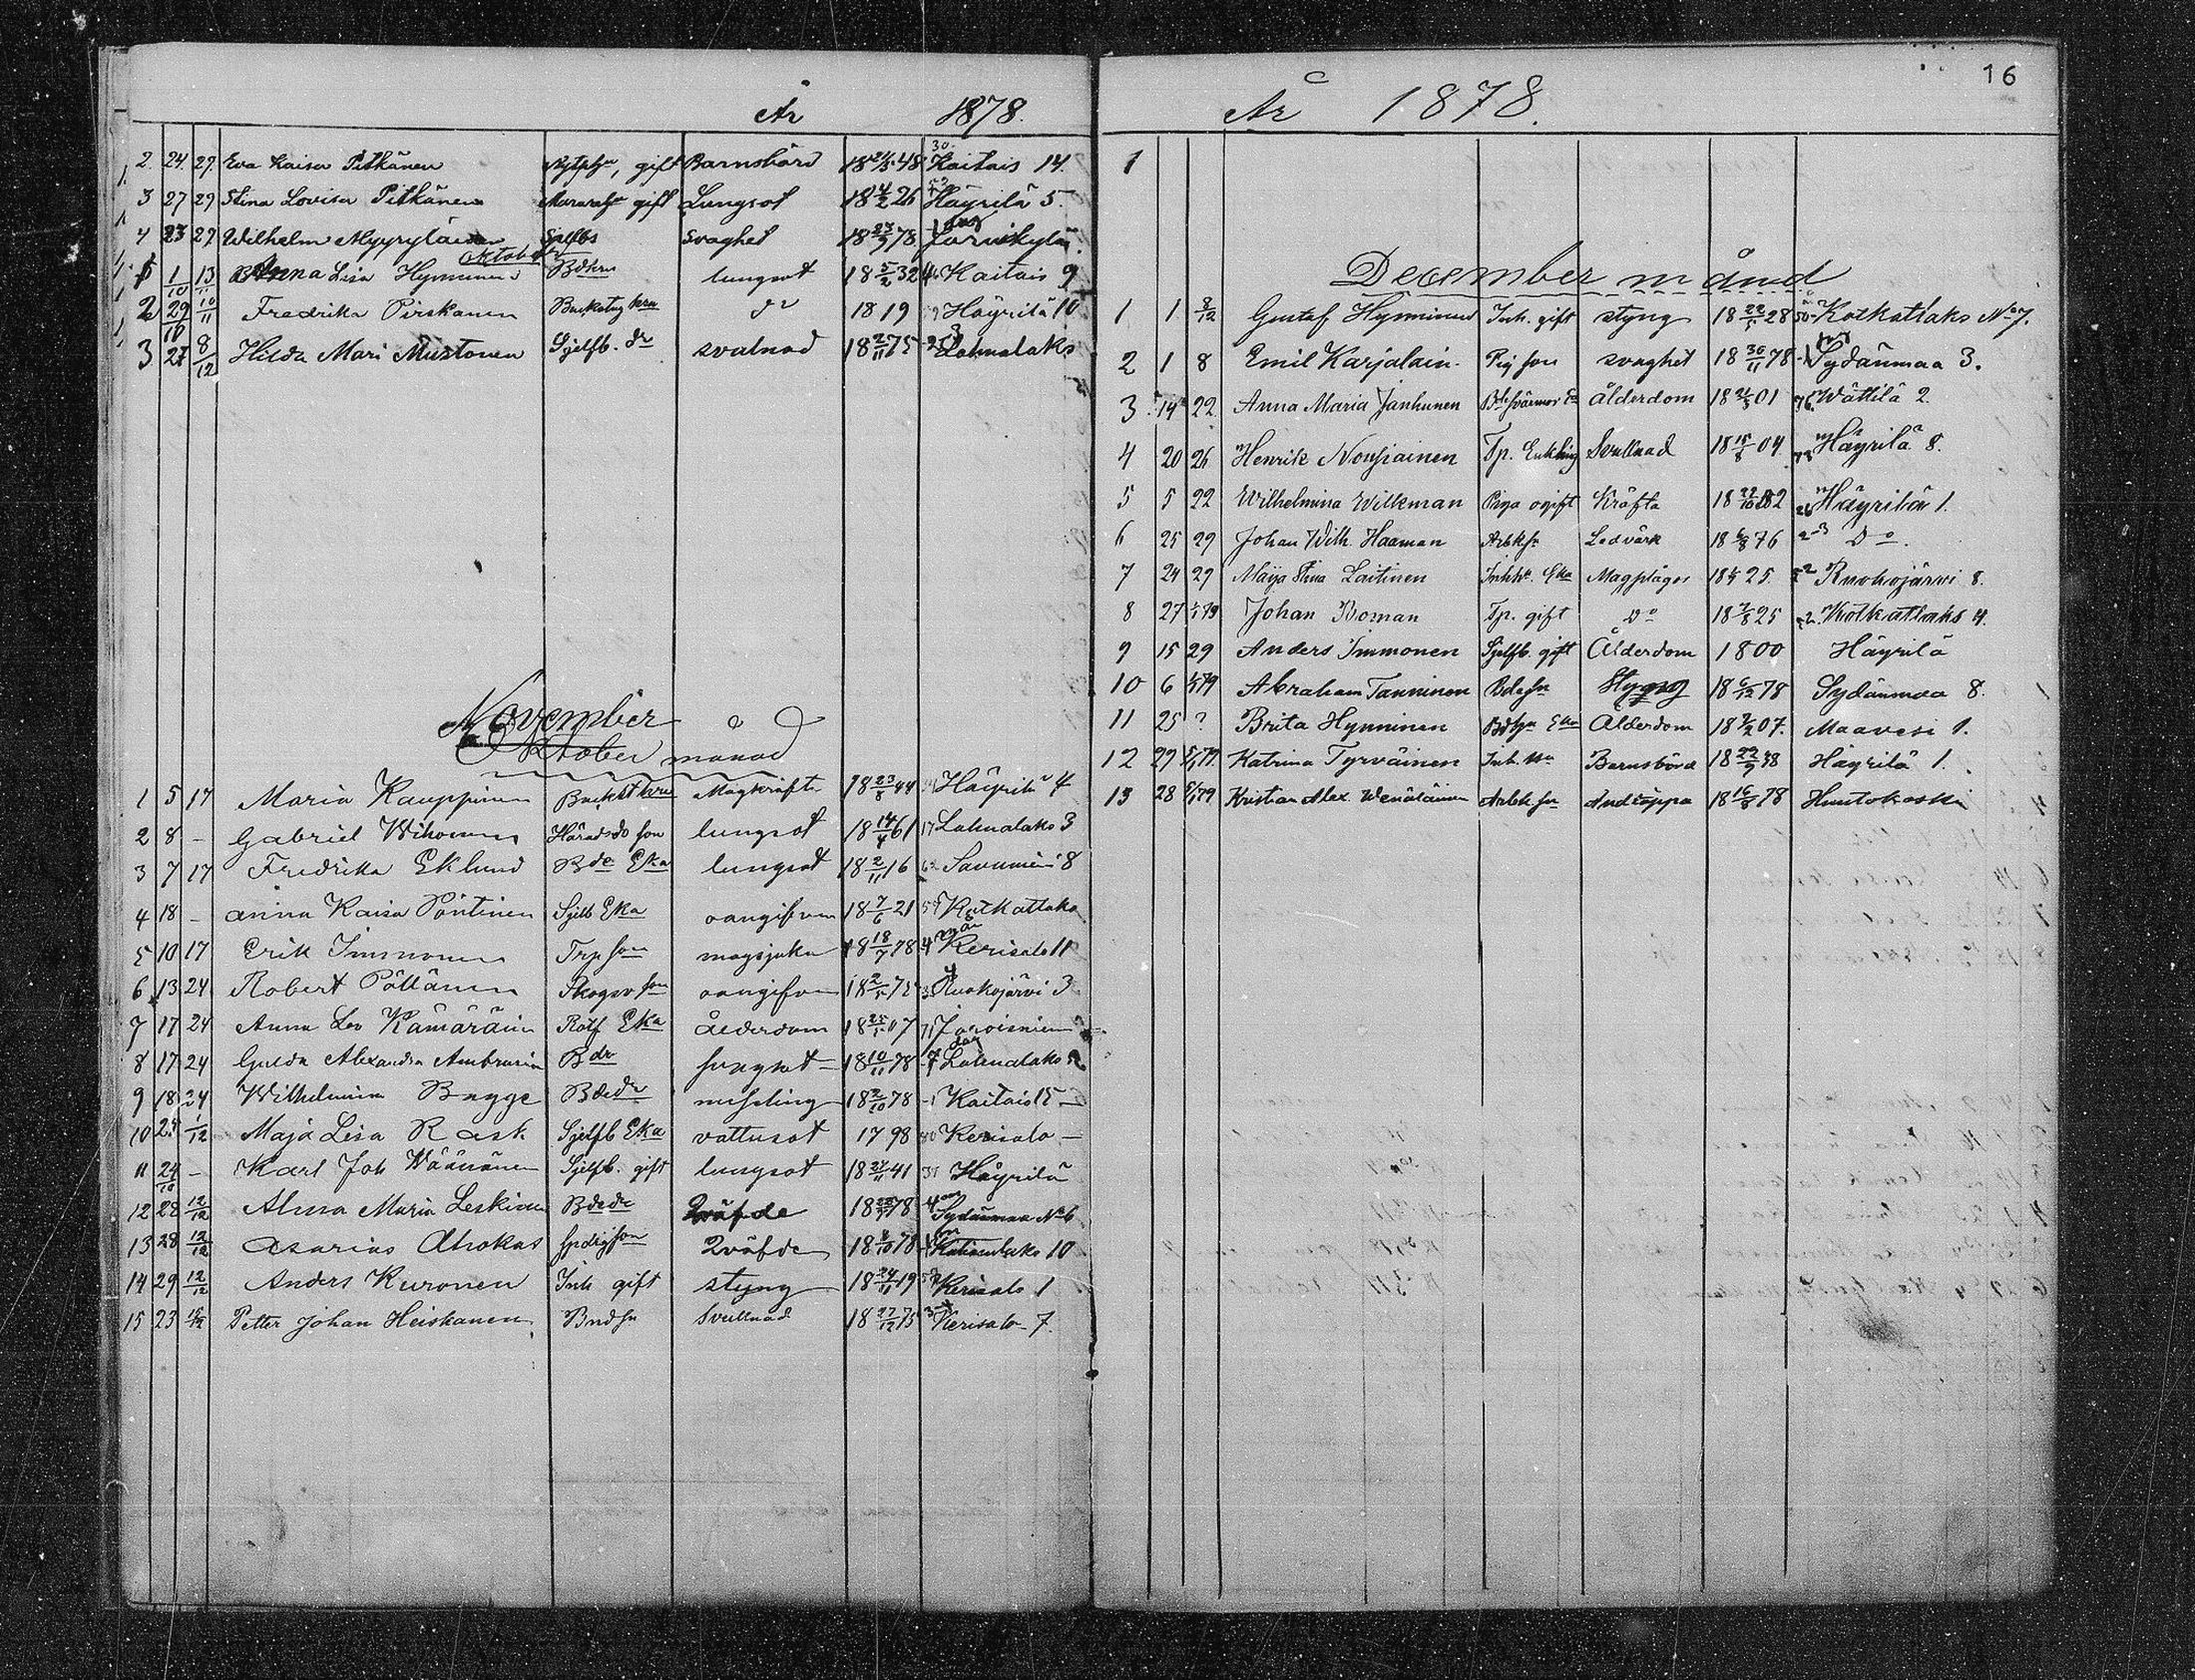 År 1878.
2. 24. 27. Eva Kaisa Pitkänen gift Barnsbörd 18 48 30 Kaitais 14.
3 27 29 Stina Lovisa Pitkänen gift Lungsot 18 4/2 26 52 Häyrilä 5.
4 23 27 Wilhelm Myyryläinen Sjelfbs svaghet 18 27/9 78 Jorviskylä
Oktober
1 1/10 13/11 Anna Lisa Hynninen Bdhru lungsot 18 5/2 32 46 Kaitais 9
2 29/10 10/11 Fredrika Pirskanen Backstug hru do 1819 Häyrilä 10
3 27 8/12 Hilda Mari Mustonen Sjelfb. dr svalnad 18 2/11 75 Lahnalaks
November
Oktober månad
1 5 17 Maria Kauppinen Backst hru Magkräfta 18 23/8 44 Häyrilä 4
2 8 - Gabriel Wihonen Häradsdo son lungsot 18 14/4 61 17 Lahnalaks 3
3 7 17 Fredrika Eklund Bde Eka lungsot 18 2/11 16 62 Savuniemi 8
4 18 - Anna Kaisa Pöntinen Sjelb Eka oangifven 18 7/6 21 57 Kotkatlaks
5 10 17 Erik Immonen Trp son magsjuka 18 18/7 78 4 Kerisalo 11
6 13 24 Robert Pöllänen Skogsv son oangifven 18 2/5 75 3 Ruokojärvi 3
7 17 24 Anna Lov Kämäräin Rotf Eka Ålderdom 18 25/5 07 71 Joroisniemi
8 17 24 Gulda Alexandra Ambrusin Bdr lungsot 18 10/11 78 7 dag Lahnalaks 2
9 18 24 Wilhelmina Bagge Bdedr messling 18 2/10 78 -1 Kaitais 15 -
10 23 1/12 Maja Lisa Rask Sjelfb Eka vattusot 1798 80 Kerisalo -
11 24/10 - Karl Joh Wäänänen Sjelfb. gift lungsot 18 27/11 41 37 Häyrilä
12 28 12/12 Alma Maria Leskinen Bdedr Qväfde 18 78 4 Sydänmaa No 6
13 28 12/12 Asarias Ahokas son Qväfde 18 8/10 78 10
14 29 12/12 Anders Kuronen Inh gift styng 18 24/11 19 59 Kerisalo 1
15 23 15/12 Petter Johan Heiskanen Bndsn Svullnad 18 27/12 75 Kerisalo 7.
16
År 1878.
1
December månad
1 1 8/12 Gustaf Hynninen Inh. gift styng 18 22/5 28 50 Kotkatlaks No 7.
2 1 8 Emil Karjalain. Pig son svaghet 18 30/11 78 -1 Sydänmaa 3.
3 14 22 Anna Maria Janhunen Bde svärmor Ea Ålderdom 18 01 76 Wättilä 2.
4 20 26 Henrik Nousiainen Tp. Enkling Svullnad 18 15/8 04 Häyrilä 8.
5 5 22 Wilhelmina Wilkman Piga ogift Kräfta 18 22/10 52 26 Häyrilä 1.
6 25 29 Johan Wilh. Haaman Arbksn Ledvärk 18 6/8 76 2 Do.
7 24 29 Maija Stina Laitinen Inhh. Eka Magplågor 18 25. Ruokojärvi 8.
8 27 1/1 79 Johan Boman Tp. gift Do 18 7/8 25 52 Kotkatlaks 4.
9 15 29 Anders Immonen Sjelfb. gift Ålderdom 1800 Häyrilä
10 6 79 Abraham Tanninen Bdesn 18 6/12 78 Sydänmaa 8.
11 25 ? Brita Hynninen Eka Ålderdom 18 7/2 07. Maavesi 1.
12 29 5/1 79. Katrina Tyrväinen Inh. hu Barnsbörd 18 22/9 38 Häyrilä 1.
13 28 79 Kristian Alex. Wenäläinen Arbk sn Andtäppa 18 16/8 78 Huutokoski